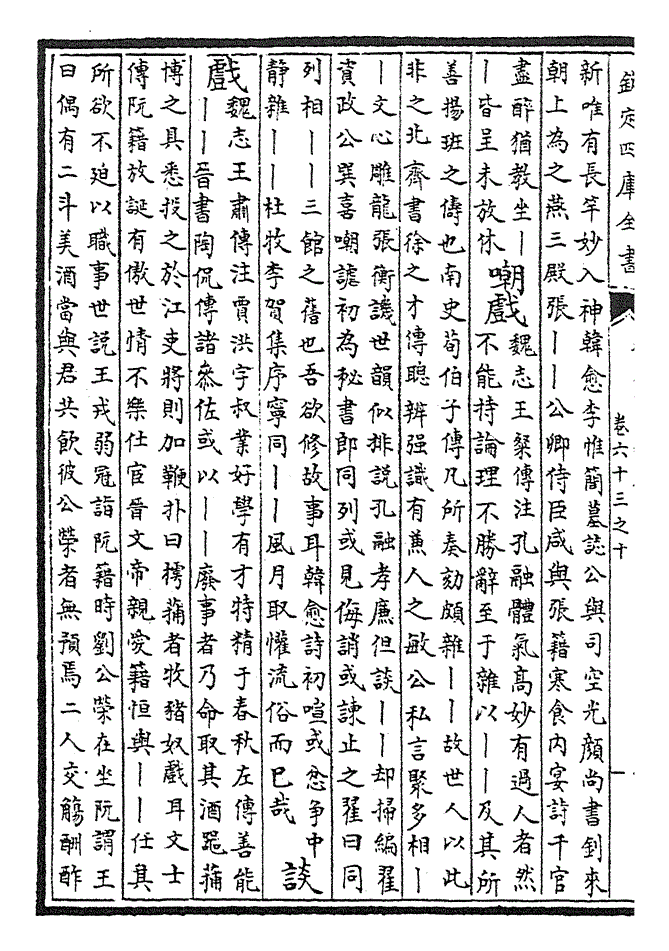 欽定四庫全書
卷六十三之十
新唯有長竿妙入神韓愈李惟簡墓誌公與司空光顔尚書釗來
朝上為之燕三殿張丨丨公卿侍臣咸與張籍寒食内宴詩千官
盡醉猶教坐丨
丨皆呈未放休
嘲戲
魏志王粲傳注孔融體氣髙妙有過人者然
不能持論理不勝辭至于雜以丨丨及其所
善揚班之儔也南史荀伯子傳凡所奏劾頗雜丨丨故世人以此
非之北齊書徐之才傳聰辨强識有蒹人之敏公私言聚多相丨
丨文心雕龍張衡譏世韻似排說孔融孝廉但談丨丨却掃編翟
資政公巽喜嘲謔初為秘書郎同列或見侮誚或諫止之翟曰同
列相丨丨三館之舊也吾欲修故事耳韓愈詩初喧或忿爭中
静雜丨丨杜牧李賀集序寧同丨丨風月取懽流俗而已哉
談
戲
魏志王肅傳注賈洪字叔業好學有才特精于春秋左傳善能
丨丨晉書陶侃傳諸叅佐或以丨丨廢事者乃命取其酒噐蒱
博之具悉投之於江吏將則加鞭扑曰樗蒱者牧豬奴戲耳文士
傳阮籍放誕有傲世情不樂仕宦晉文帝親愛籍恒與丨丨任其
所欲不迫以職事世說王戎弱冠詣阮籍時劉公榮在坐阮謂王
曰偶有二斗美酒當與君共飲彼公榮者無預焉二人交觴酬酢